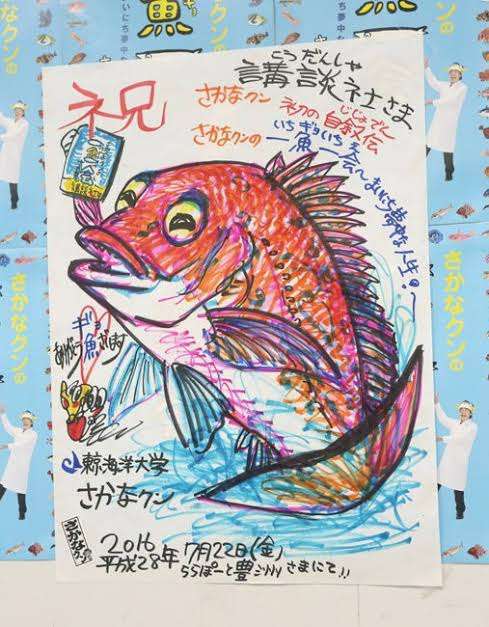 こうだんしゃ
講談社さま
祝
さかなクン
初の自叙伝
じじょでん
さかなクンの
いちぎょいちえ
一魚一会〜まいにち夢中な人生!〜
ギョ
ありがとう魚ざいます
東京海洋大学
さかなクン
さかなクン
2016
平成28年 7月22日(金)
ららぽーと豊洲さまにて!!
魚
いにち夢中な
さかなクンの
さかなクンの